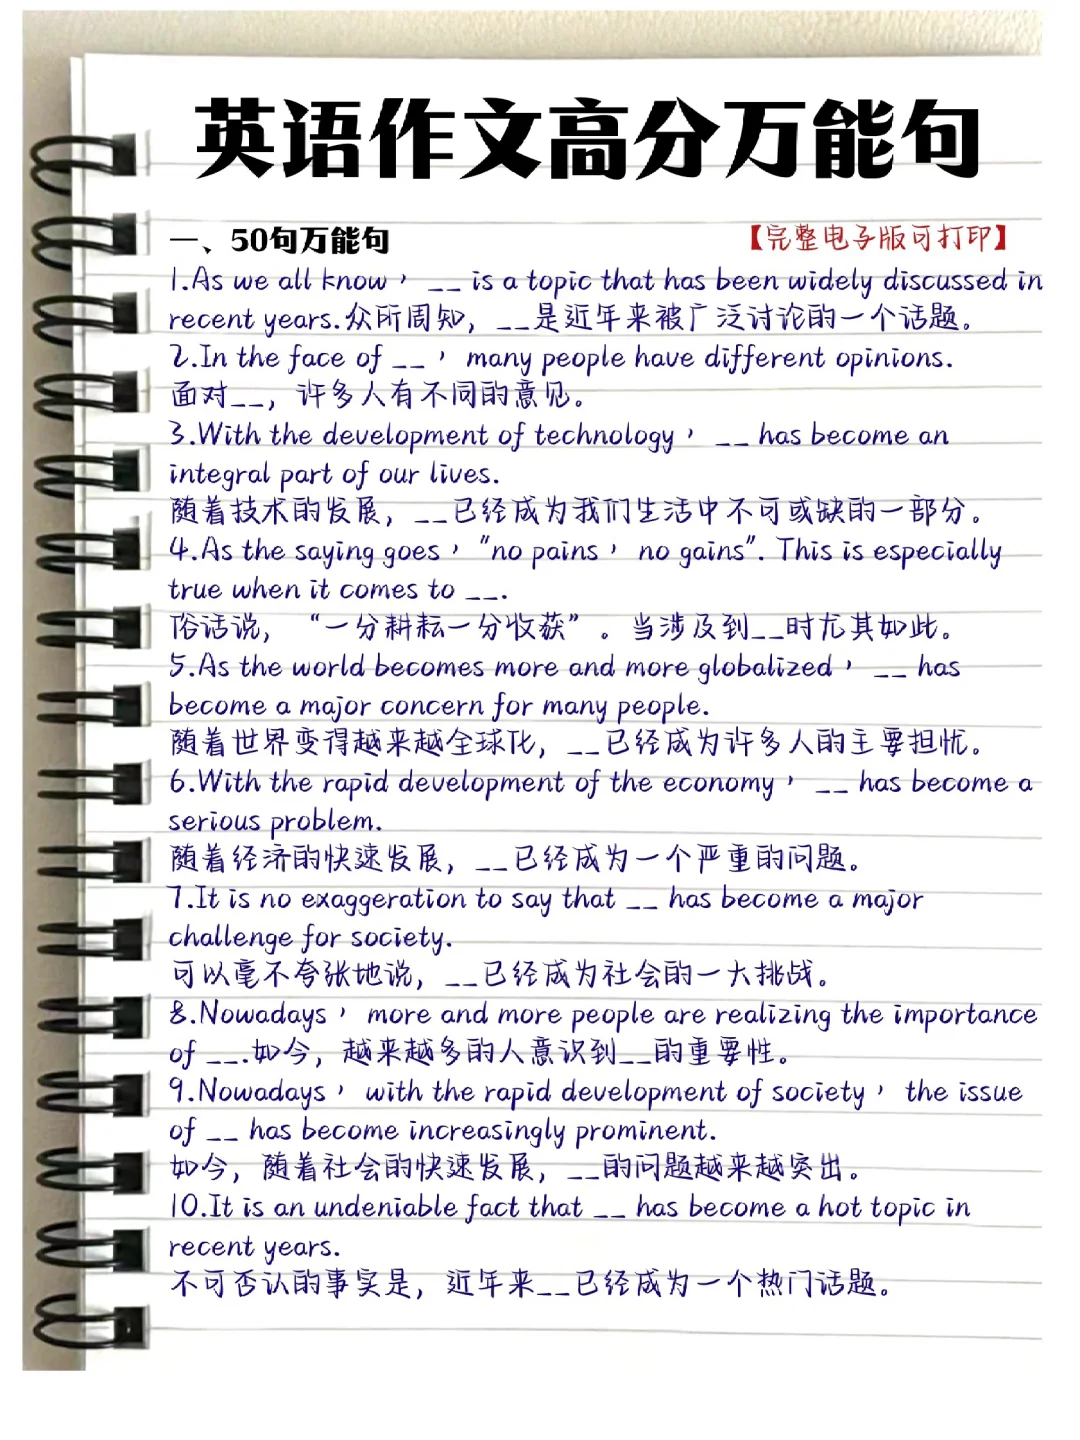 英语作文高分万能句
一、50句万能句 【完整电子版可打印】
1.As we all know， __ is a topic that has been widely discussed in
recent years.众所周知，__是近年来被广泛讨论的一个话题。
2.In the face of __， many people have different opinions.
面对__，许多人有不同的意见。
3.With the development of technology， __ has become an
integral part of our lives.
随着技术的发展，__已经成为我们生活中不可或缺的一部分。
4.As the saying goes，"no pains， no gains". This is especially
true when it comes to __.
俗话说，“一分耕耘一分收获”。当涉及到__时尤其如此。
5.As the world becomes more and more globalized， __ has
become a major concern for many people.
随着世界变得越来越全球化，__已经成为许多人的主要担忧。
6.With the rapid development of the economy， __ has become a
serious problem.
随着经济的快速发展，__已经成为一个严重的问题。
7.It is no exaggeration to say that __ has become a major
challenge for society.
可以毫不夸张地说，__已经成为社会的一大挑战。
8.Nowadays， more and more people are realizing the importance
of __.如今，越来越多的人意识到__的重要性。
9.Nowadays， with the rapid development of society， the issue
of __ has become increasingly prominent.
如今，随着社会的快速发展，__的问题越来越突出。
10.It is an undeniable fact that __ has become a hot topic in
recent years.
不可否认的事实是，近年来__已经成为一个热门话题。